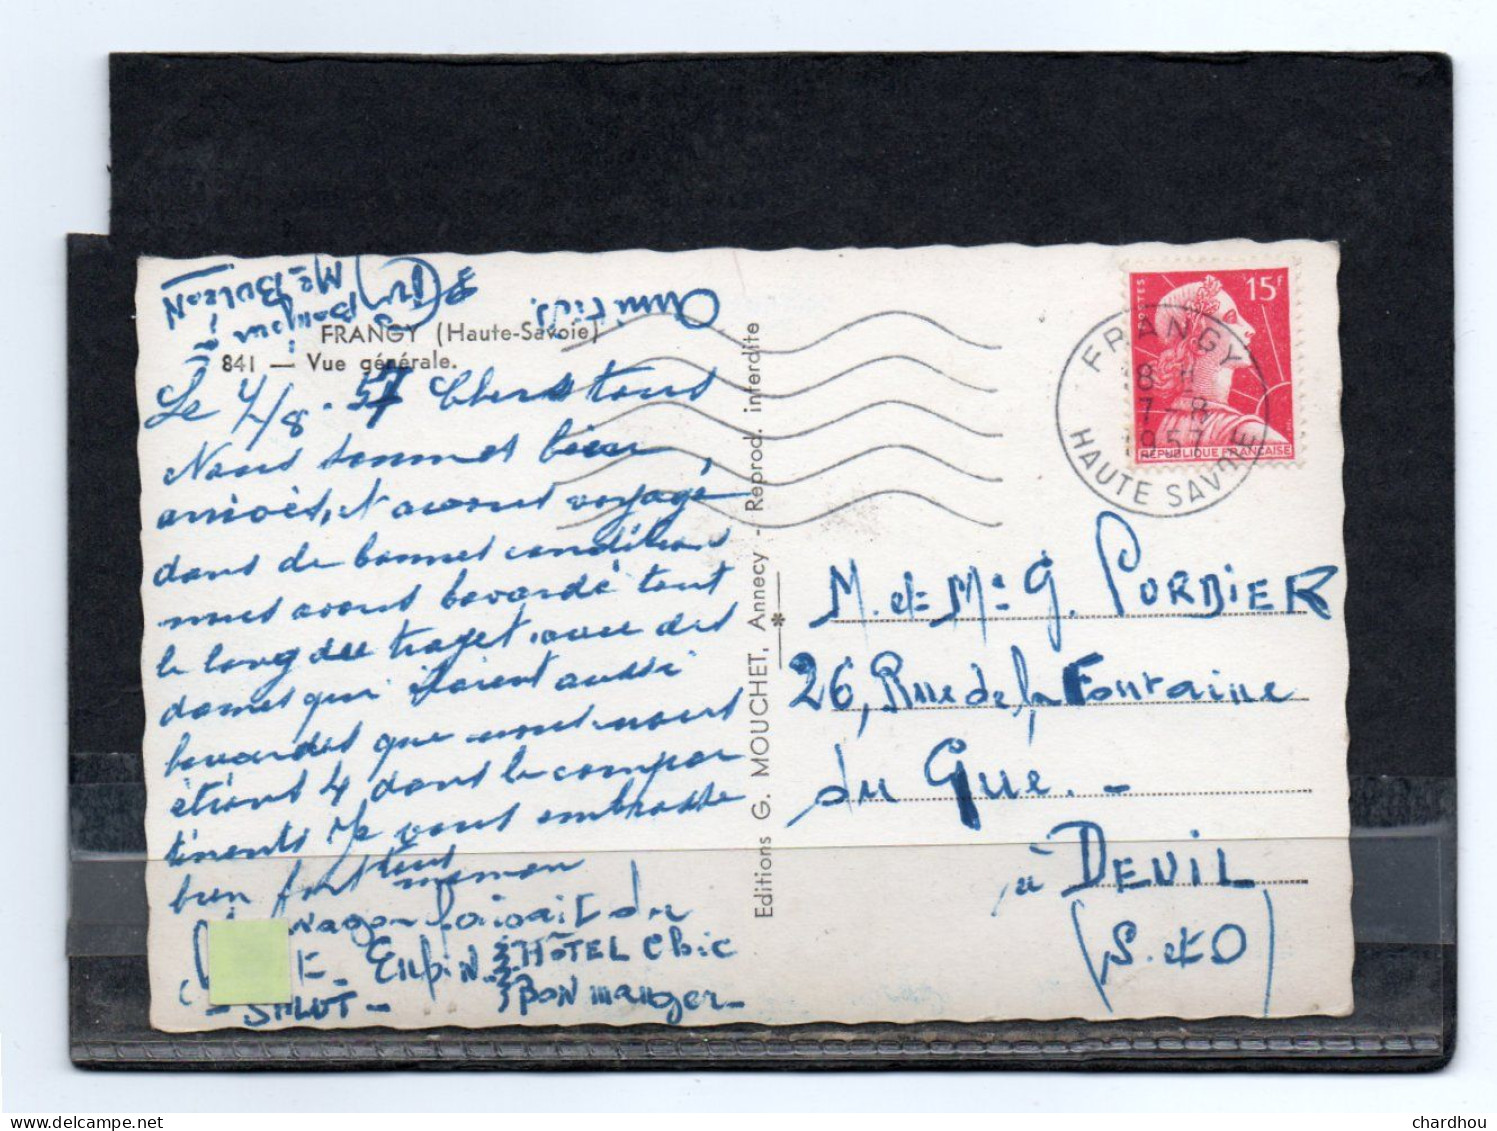 FRANGY (Haute-Savoie)
841 — Vue générale.
Amitiés.
Bonjour
Me BULEON
Le 4/8.57 Chers tous
Nous sommes bien
arrivés, et avons voyagé
dans de bonnes conditions
nous avons bavardé tout
le long du trajet avec des
dames qui étaient aussi
bavardes que nous nous
étions 4 dans le compar
timents Je vous embrasse
bien fort tous maman
wagon faisait du
HÔTEL Chic
Bon manger
SALUT
Editions G. MOUCHET, Annecy - Reprod. interdite
*
15F
POSTES
REPUBLIQUE FRANCAISE
FRANGY
8 H
7-8
1957
HAUTE SAVOIE
M. et Me G. PORDIER
26, Rue de la Fontaine
du Gué. -
à DEUIL
(S. et O)
chardhou